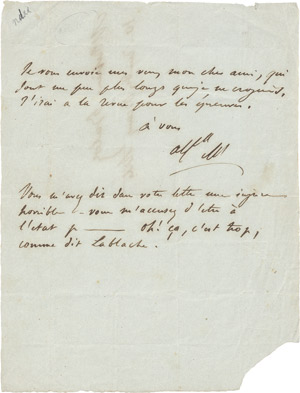 Je vous envoie mes vers mon cher ami, qui
sont un peu plus longs que je ne croyais,
J'irai a la revue pour les épreuves.
à vous
Alf d M
Vous m'avez dit dans votre lettre une injure
horrible – vous m'accusez d'être à
l'état p——— oh! ça, c'est trop,
comme dit Lablache.